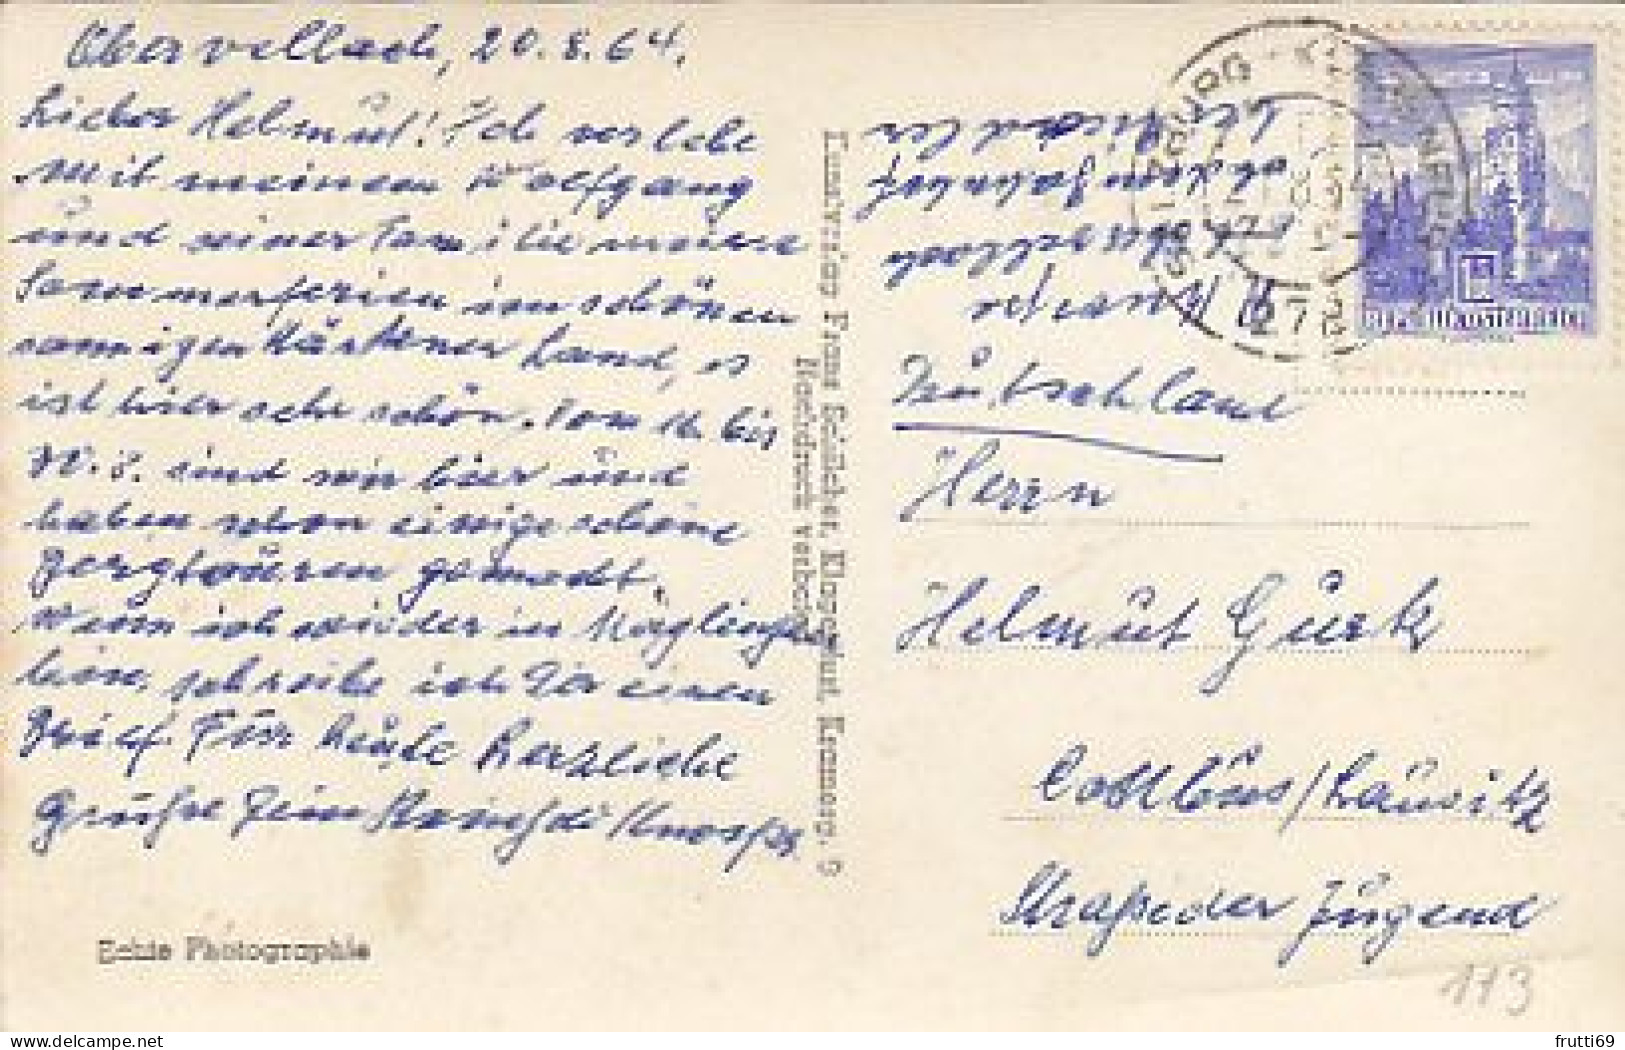 Obervellach, 20.8.64.
Lieber Helmut! Ich verlebe
mit meinem Wolfgang
und seiner Familie meine
Sommerferien im schönen
sonnigen Kärtener Land, es
ist hier sehr schön. Vom bis
sind wir hier und
haben schon einige schöne
Bergtouren gemacht.
Wenn ich wieder in Möglingen
bin, schreibe ich Dir einen
Brief. Für heute herzliche
Grüße Dein
Echte Photographie
Kunstverlag Franz Schilcher, Klagenfurt, Kramerg. 9
Nachdruck verboten
Obervellach
Deutschland
Herrn
Helmut Gurk
Cottbus/Lausitz
Straße der Jugend
113
frutti69